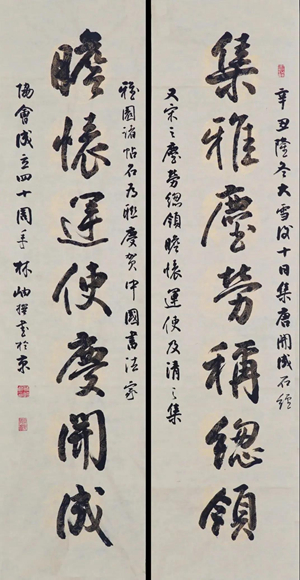 辛丑隆冬大雪後十日集唐開成石經
集雅塵勞稱總領
又宋之塵勞總領瞻懷運使及清之集
雅園諸帖石為聯慶賀中國書法家
瞻懷運使慶開成
協會成立四十周年林岫撰書於京